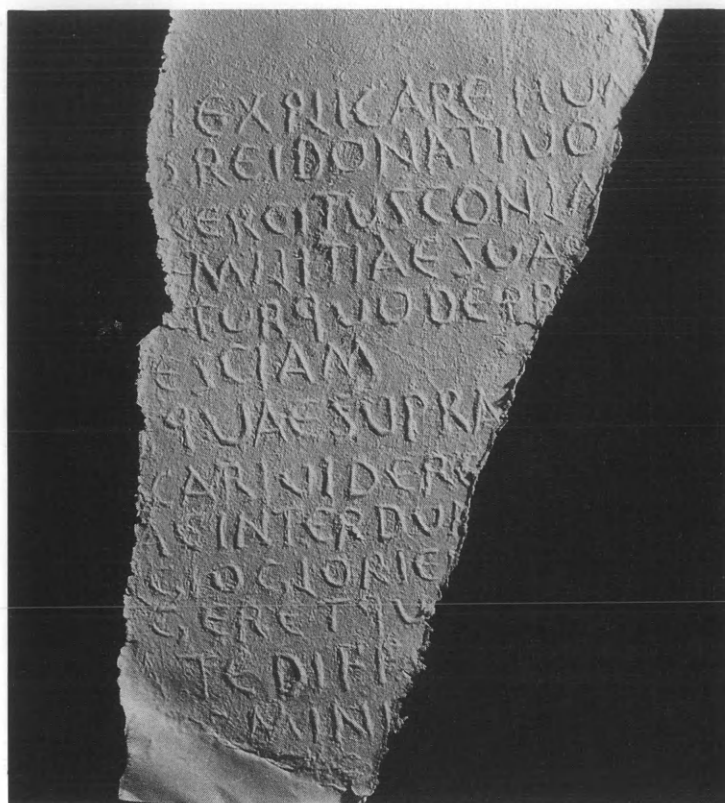 EXPLICARE HUN
S REI DONATIUO
CERCITUS CON IM
MILITIAE SUAE
TUR QUOD E PR
E SCIAM
QUAE SUPRA
CARI UIDERE
AE INTERDUM
CIO GLORIE
GERET QU
TE DIFF
MINI